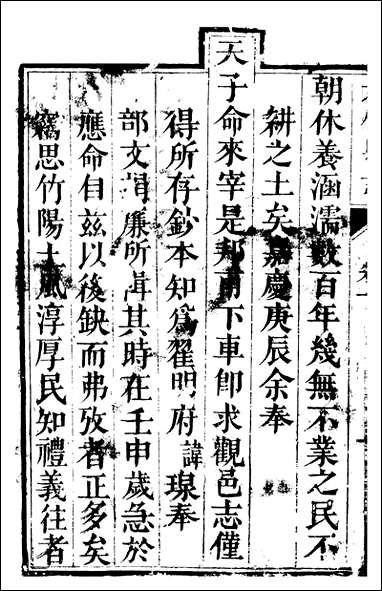 朝休養涵濡數百年幾無不業之民不
耕之土矣嘉慶庚辰余奉
天子命來宰是邦甫下車即求觀邑志僅
得所存鈔本知爲翟明府諱琮奉
部文捐廉所輯其時在壬申歲急於
應命自茲以後缺而弗攷者正多矣
竊思竹陽土風淳厚民知禮義往者